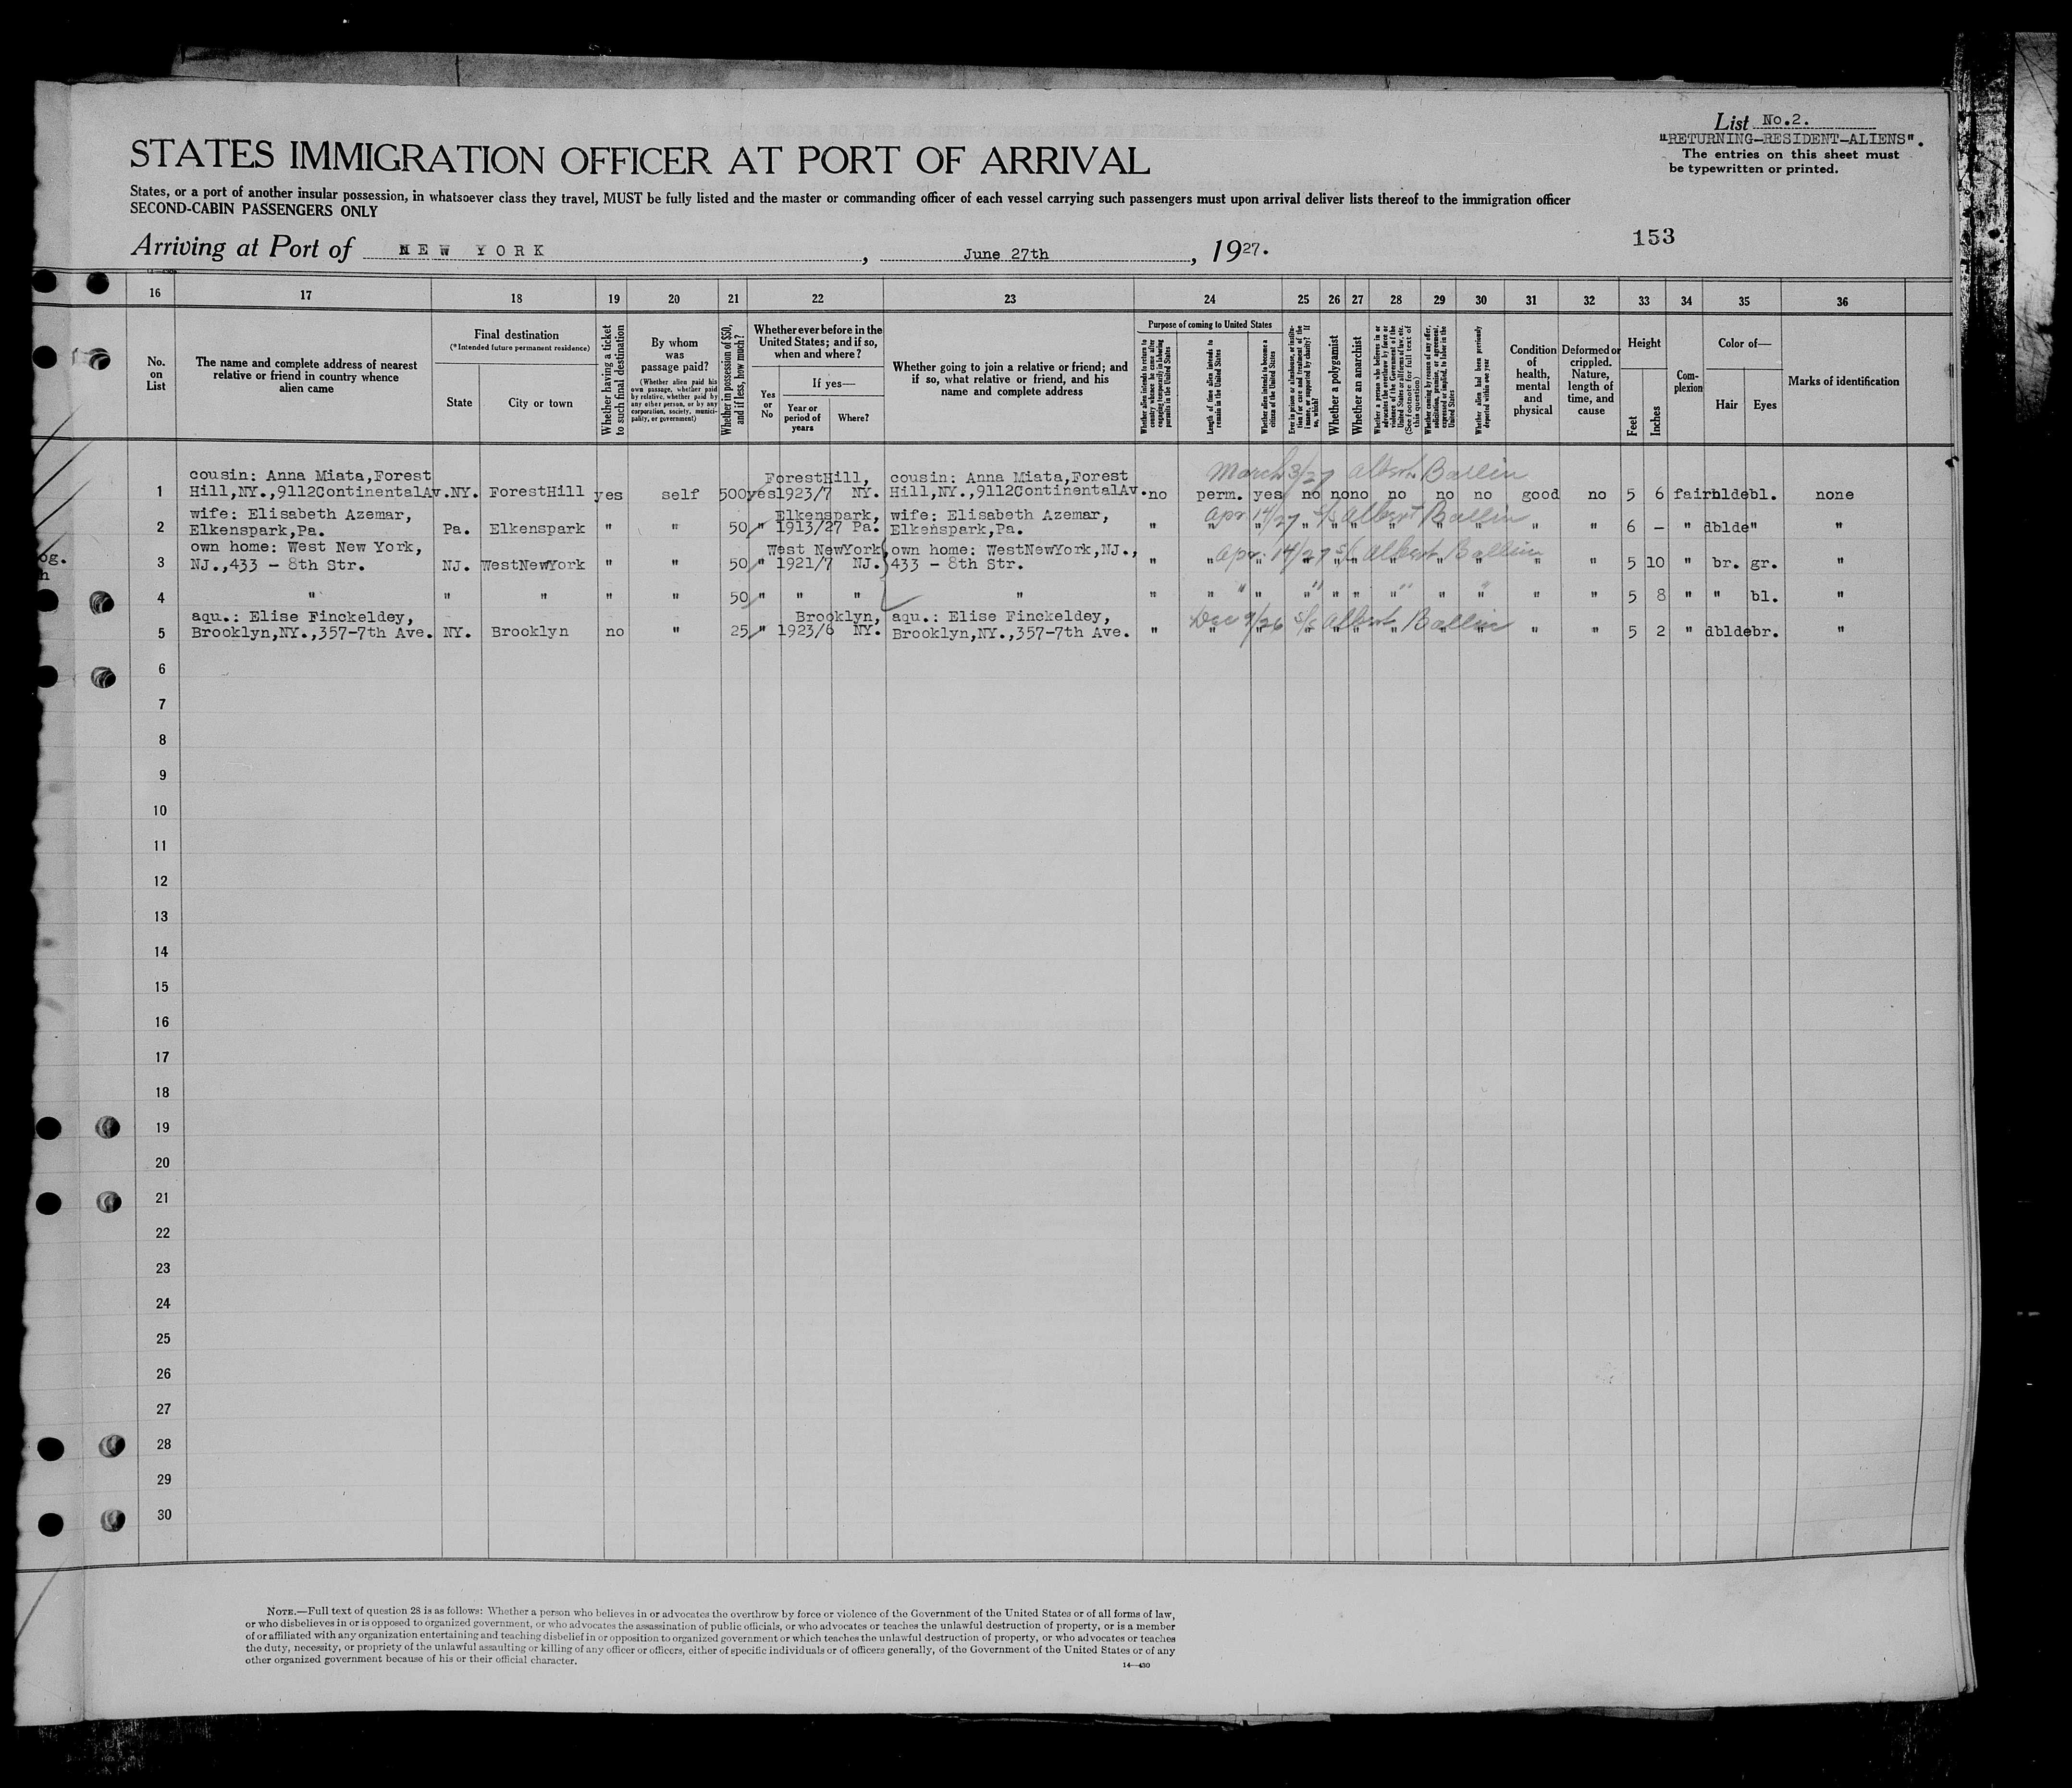 List No.2.
"RETURNING-RESIDENT-ALIENS".
The entries on this sheet must
be typewritten or printed.
STATES IMMIGRATION OFFICER AT PORT OF ARRIVAL
States, or a port of another insular possession, in whatsoever class they travel, MUST be fully listed and the master or commanding officer of each vessel carrying such passengers must upon arrival deliver lists thereof to the immigration officer
SECOND-CABIN PASSENGERS ONLY
Arriving at Port of NEW YORK, June 27th, 1927.
153
16 17 18 19 20 21 22 23 24 25 26 27 28 29 30 31 32 33 34 35 36
No. on List
The name and complete address of nearest relative or friend in country whence alien came
Final destination
(*Intended future permanent residence)
State
City or town
Whether having a ticket to such final destination
By whom was passage paid?
(Whether alien paid his own passage, whether paid by relative, whether paid by any other person, or by any corporation, society, municipality, or government)
Whether in possession of $50, and if less, how much?
Whether ever before in the United States; and if so, when and where?
Yes or No
If yes—
Year or period of years
Where?
Whether going to join a relative or friend; and if so, what relative or friend, and his name and complete address
Purpose of coming to United States
Whether alien intends to return to country whence he came after engaging temporarily in laboring pursuits in the United States
Length of time alien intends to remain in the United States
Whether alien intends to become a citizen of the United States
Ever in prison or almshouse, or institution for care and treatment of the insane, or supported by charity? If so, which?
Whether a polygamist
Whether an anarchist
Whether a person who believes in or advocates the overthrow by force or violence of the Government of the United States or all forms of law, etc. (See footnote for full text of this question)
Whether coming by reason of any offer, solicitation, promise, or agreement, expressed or implied, to labor in the United States
Whether alien had been previously deported within one year
Condition of health, mental and physical
Deformed or crippled. Nature, length of time, and cause
Height
Feet
Inches
Complexion
Color of—
Hair
Eyes
Marks of identification
March 3/27 Albert Ballin
cousin: Anna Miata,Forest ForestHill, cousin: Anna Miata,Forest
1 Hill,NY.,9112ContinentalAv. NY. ForestHill yes self 500 yes 1923/7 NY. Hill,NY.,9112ContinentalAv. no perm. yes no no no no no no good no 5 6 fair blde bl. none
Apr 14/27 S/S Albert Ballin
wife: Elisabeth Azemar, Elkenspark, wife: Elisabeth Azemar,
2 Elkenspark,Pa. Pa. Elkenspark " " 50 " 1913/27 Pa. Elkenspark,Pa. " " " " " " " " " " " 6 - " dblde " "
Apr. 14/27 S/S Albert Ballin
own home: West New York, West NewYork own home: WestNewYork,NJ.,
3 NJ.,433 - 8th Str. NJ. WestNewYork " " 50 " 1921/7 NJ. 433 - 8th Str. " " " " " " " " " " " 5 10 " br. gr. "
4 " " " " " 50 " " " " " " " " " " " " " " " 5 8 " " bl. "
Dec 9/26 S/S Albert Ballin
aqu.: Elise Finckeldey, Brooklyn, aqu.: Elise Finckeldey,
5 Brooklyn,NY.,357-7th Ave. NY. Brooklyn no " 25 " 1923/6 NY. Brooklyn,NY.,357-7th Ave. " " " " " " " " " " " 5 2 " dblde br. "
6
7
8
9
10
11
12
13
14
15
16
17
18
19
20
21
22
23
24
25
26
27
28
29
30
NOTE.—Full text of question 28 is as follows: Whether a person who believes in or advocates the overthrow by force or violence of the Government of the United States or of all forms of law,
or who disbelieves in or is opposed to organized government, or who advocates the assassination of public officials, or who advocates or teaches the unlawful destruction of property, or is a member
of or affiliated with any organization entertaining and teaching disbelief in or opposition to organized government or which teaches the unlawful destruction of property, or who advocates or teaches
the duty, necessity, or propriety of the unlawful assaulting or killing of any officer or officers, either of specific individuals or of officers generally, of the Government of the United States or of any
other organized government because of his or their official character.
14—430